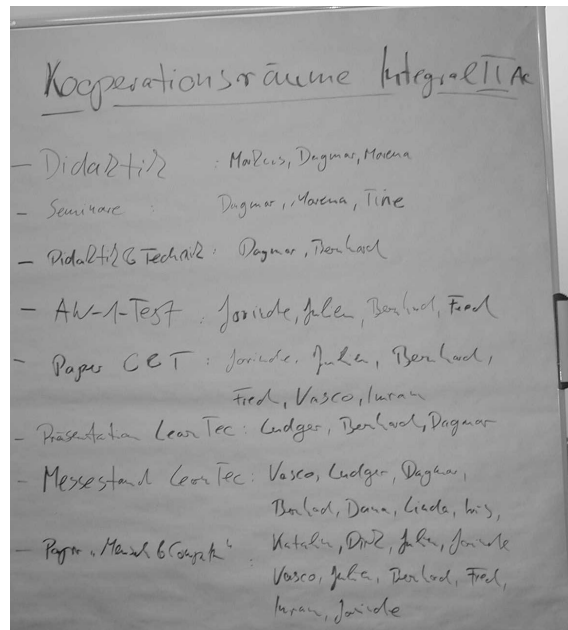 Kooperationsräume Integral II
- Didaktik : Markus, Dagmar, Morena
- Seminare : Dagmar, Morena, Tine
- Didaktik & Technik: Dagmar, Bernhard
- AW-1-Test : Jorinde, Julien, Bernhard, Fred
- Paper CCT : Jorinde, Julien, Bernhard,
Fred, Vasco, Imran
- Präsentation LearnTec: Ludger, Bernhard, Dagmar
- Messestand LearnTec: Vasco, Ludger, Dagmar,
Bernhard, Dana, Linda, Iris,
Katalin, Dirk, Julien, Jorinde
- Paper "Mensch & Computer" :
Vasco, Julien, Bernhard, Fred,
Imran, Jorinde